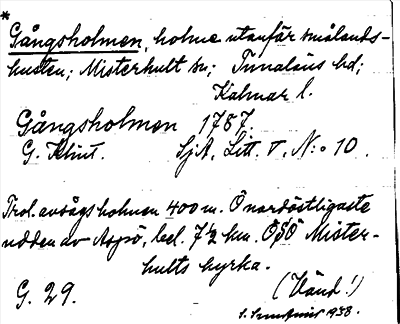 *
Gångsholmen, holme utanför smålands-
kusten; Misterhult sn; Tunaläns hd;
Kalmar l.
Gångsholmen 1787.
G. Klint. SjA, Litt. T, N:o 10.
Trol. avsågs holmen 400 m. Ö nordöstligaste
udden av Aspö, bel. 7½ km. ÖSÖ Mister-
hults kyrka.
G. 29. (Vänd!)
1938.